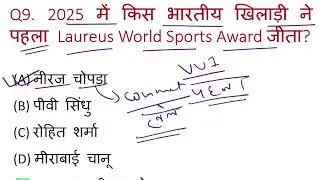 Q9. 2025 में किस भारतीय खिलाड़ी ने
पहला Laureus World Sports Award जीता?
(A) नीरज चोपड़ा
(B) पीवी सिंधु
(C) रोहित शर्मा
(D) मीराबाई चानू
VVI